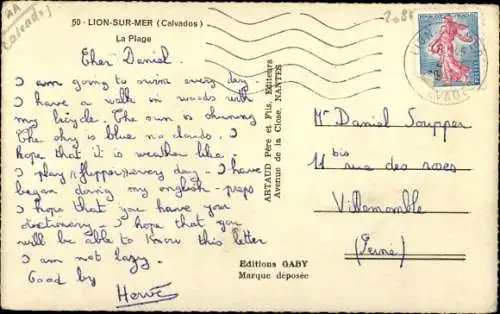 AA
Calvados
50 - LION-SUR-MER (Calvados)
La Plage
Cher Daniel.
I am going to swim every day.
I have a walk in woods with
my bicycle. The sun is shinning
The sky is blue no clouds. I
hope that it is weather like.
I play every day - I have
began doing my english - preps
I hope that you have your
doctionery - I hope that you
will be able to know this letter
I am not lazy.
Good by
Hervé
ARTAUD Père et Fils, Editeurs
Avenue de la Close, NANTES
Editions GABY
Marque déposée
REPUBLIQUE FRANCAISE
LION
CALVADOS
Mr Daniel Soupper
11 bis rue des roses
Villemomble
(Seine)